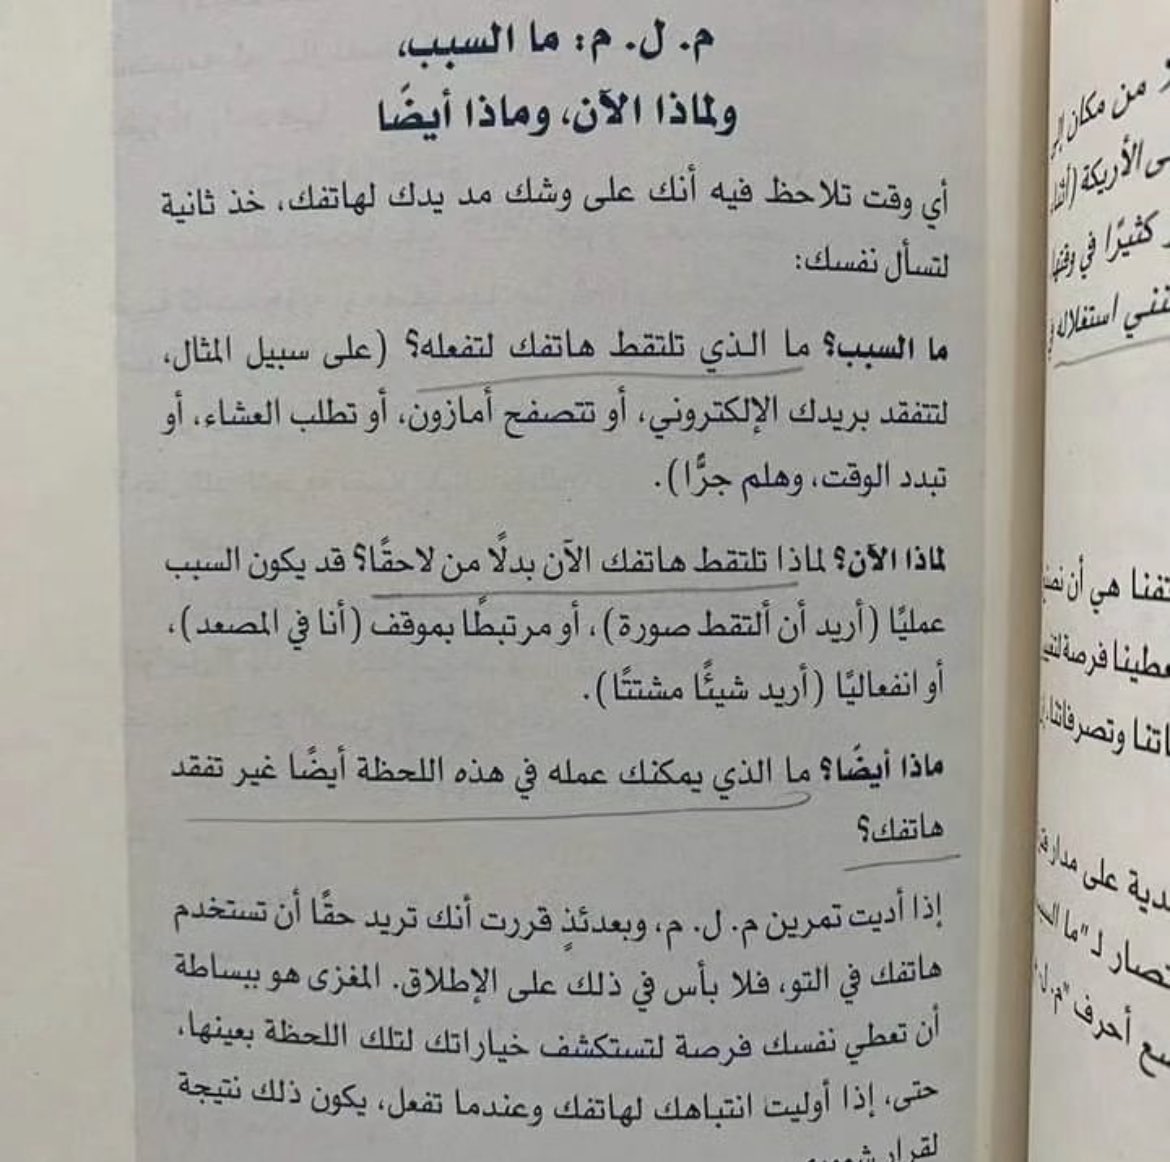 م. ل. م: ما السبب،
ولماذا الآن، وماذا أيضًا
أي وقت تلاحظ فيه أنك على وشك مد يدك لهاتفك، خذ ثانية
لتسأل نفسك:
ما السبب؟ ما الذي تلتقط هاتفك لتفعله؟ (على سبيل المثال،
لتتفقد بريدك الإلكتروني، أو تتصفح أمازون، أو تطلب العشاء، أو
تبدد الوقت، وهلم جرًّا).
لماذا الآن؟ لماذا تلتقط هاتفك الآن بدلًا من لاحقًا؟ قد يكون السبب
عمليًا (أريد أن ألتقط صورة)، أو مرتبطًا بموقف (أنا في المصعد)،
أو انفعاليًا (أريد شيئًا مشتتًا).
ماذا أيضًا؟ ما الذي يمكنك عمله في هذه اللحظة أيضًا غير تفقد
هاتفك؟
إذا أديت تمرين م. ل. م، وبعدئذٍ قررت أنك تريد حقًا أن تستخدم
هاتفك في التو، فلا بأس في ذلك على الإطلاق. المغزى هو ببساطة
أن تعطي نفسك فرصة لتستكشف خياراتك لتلك اللحظة بعينها،
حتى، إذا أوليت انتباهك لهاتفك وعندما تفعل، يكون ذلك نتيجة
لقرار
من مكان إلى
الأريكة
كثيرًا في وقتها
استغلاله
هي أن
فرصة
وتصرفاتنا
على مدار
لـ "ما
أحرف "م. ل.